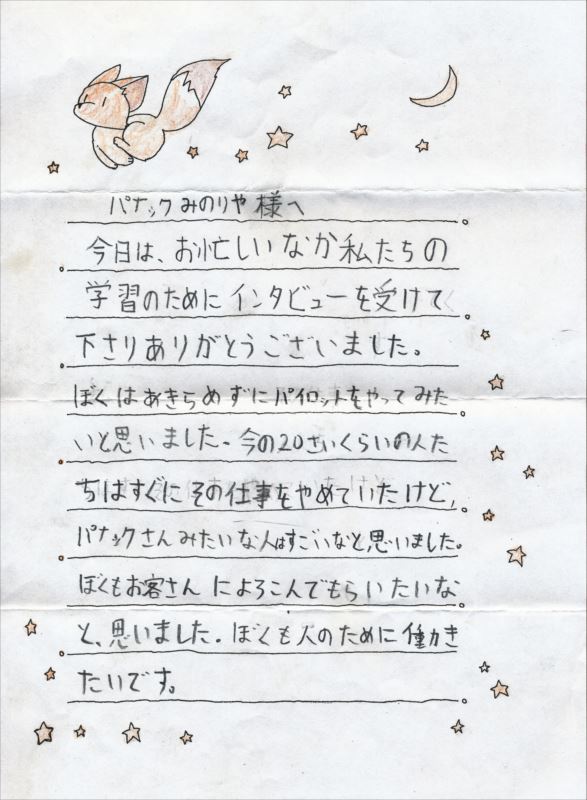 パナックみのりや様へ
今日は、お忙しいなか私たちの
学習のためにインタビューを受けて
下さりありがとうございました。
ぼくはあきらめずにパイロットをやってみた
いと思いました。今の20さいくらいの人た
ちはすぐにその仕事をやめていたけど、
パナックさんみたいな人はすごいなと思いました。
ぼくもお客さんによろこんでもらいたいな
と、思いました。ぼくも人のために働き
たいです。